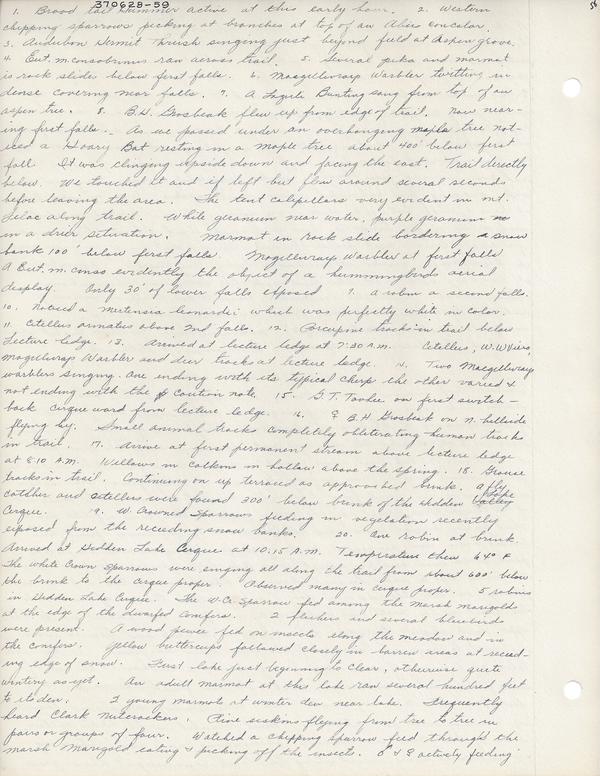 370628-59
58
1. Broad tail Hummer active at this early hour. 2. Western
chipping sparrows picking at branches at top of an Abies concolor.
3. Audubon Hermit Thrush singing just beyond field at Aspen grove.
4. Eut. m. consobrinus ran across trail. 5. Several pika and marmot
is rock slide below first falls. 6. Macgillivrays Warbler twitting in
dense covering near falls. 7. A Lazuli Bunting sang from top of an
aspen tree. 8. B.H. Grosbeak flew up from edge of trail. Now near-
ing first falls. As we passed under an overhanging maple tree not-
iced a Hoary Bat resting in a maple tree about 400' below first
fall. It was clinging upside down and facing the east. Trail directly
below. We touched it and it left but flew around several seconds
before leaving the area. The tent catepillars very evident in mt.
lilac along trail. White geranium near water, purple geranium
in a drier situation. Marmot in rock slide bordering a snow
bank 100' below first falls. Macgillivrays Warbler at first falls
A Eut. m. conso evidently the object of a hummmingbirds aerial
display. Only 30' of lower falls exposed 9. a robin a second falls.
10. Noticed a Mertensia leonardi which was perfectly white in color.
11. Citellus armatus above 2nd falls. 12. Porcupine tracks in trail below
Lecture ledge. 13. Arrived at lecture ledge at 7:30 A.M. Citellus, W.W. Vireo,
Macgillivrays Warbler and deer tracks at lecture ledge. 14. Two Macgillivrays
warblers singing. One ending with its typical cherp the other varied &
not ending with the caution note. 15. G.T. Towhee on first switch-
back cirque ward from lecture ledge. 16. ♀ B.H. Grosbeak on n. hillside
flying by. Small animal tracks completely obliterating human tracks
in trail. 17. Arrive at first permanent stream above lecture ledge
at 8:10 A.M. Willows in catkins in hollow above the spring. 18. Grouse
tracks in trail. Continuing on up terraces as approached brink, a fly
catcher and citellus were found 300' below brink of the Hidden Lake
Cirque. 19. W. Crowned Sparrows feeding in vegetation recently
exposed from the receeding snow banks. 20. One robin at brink.
Arrived at Hidden Lake Cirque at 10:15 A.M. Temperature then 64° F
The White Crown Sparrows were singing all along the trail from about 600' below
the brink to the cirque proper. Observed many in cirque proper. 5 robins
in Hidden Lake Cirque. The W.C. Sparrow fed among the marsh marigolds
at the edge of the dwarfed conifers. 2 flickers and several bluebirds
were present. A wood pewee fed on insects along the meadow and in
the conifers. Yellow buttercups followed closely in barren areas at reced-
ing edge of snow. First lake just begining to clear, otherwise quite
wintery as yet. An adult marmot at this lake ran several hundred feet
to its den. 2 young marmots at winter den near lake. Frequently
heard Clark Nutcrackers. Pine siskins flying from tree to tree in
pairs or groups of four. Watched a chipping sparrow feed through the
marsh Marigold eating & picking off the insects. ♂ & ♀ actively feeding